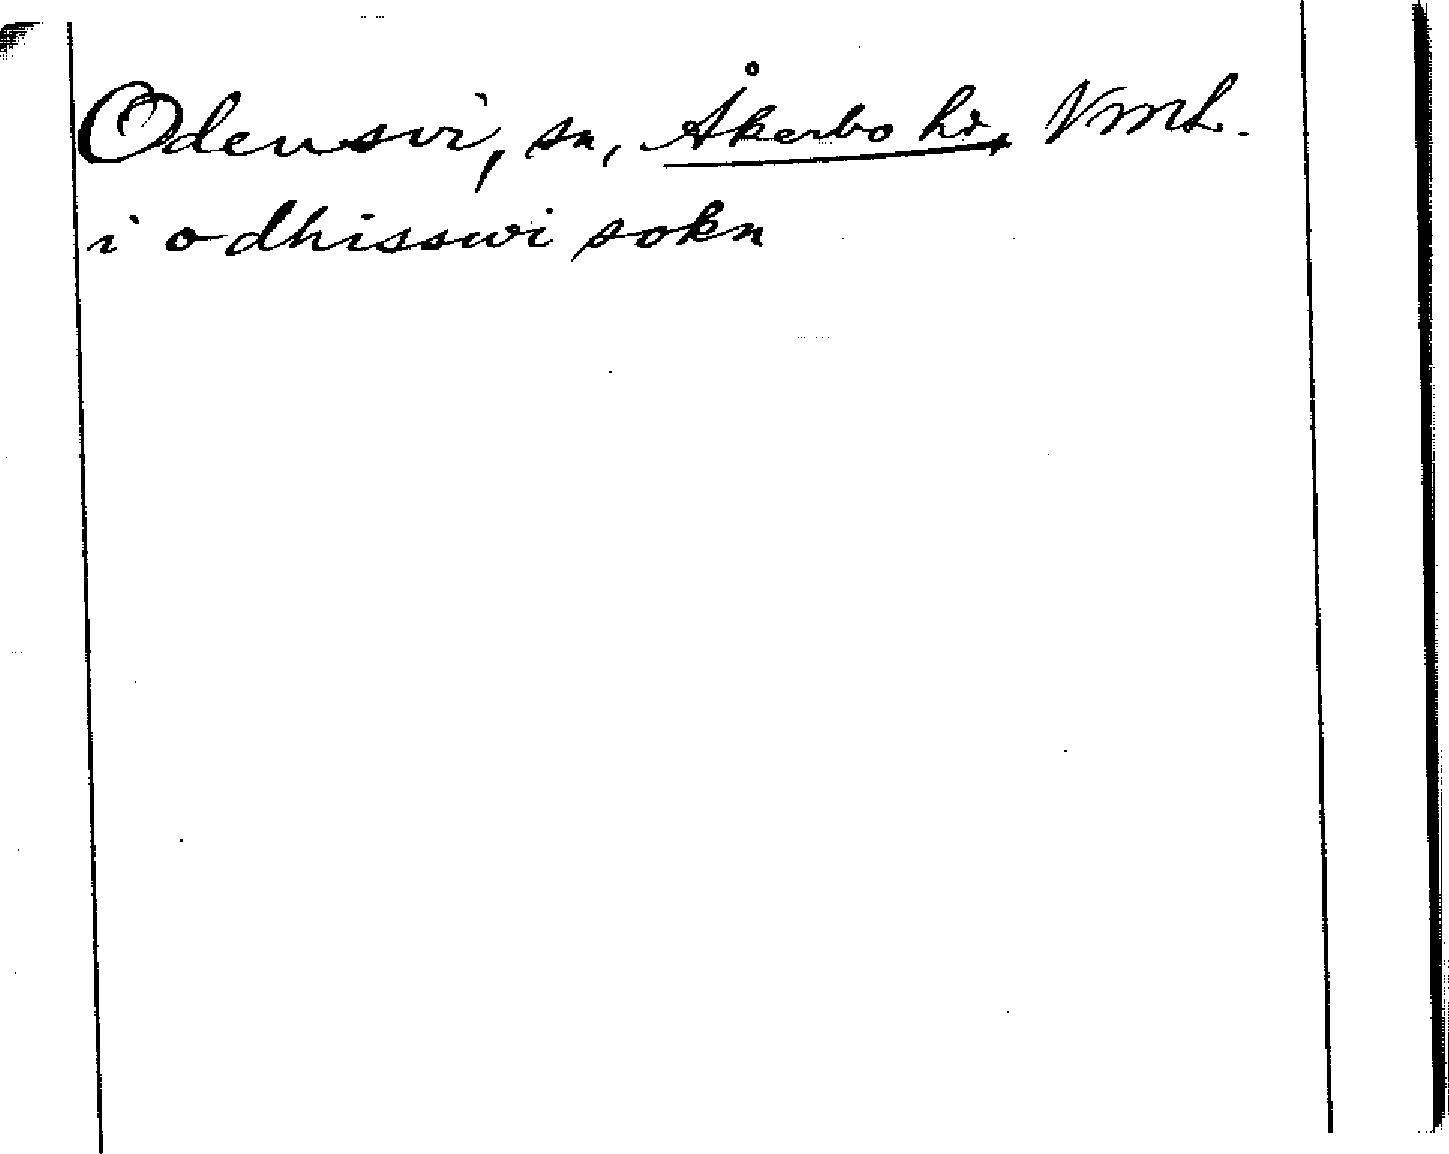 Odensvi, sn, Åkerbo hd, Vml.
i odhisswi sokn